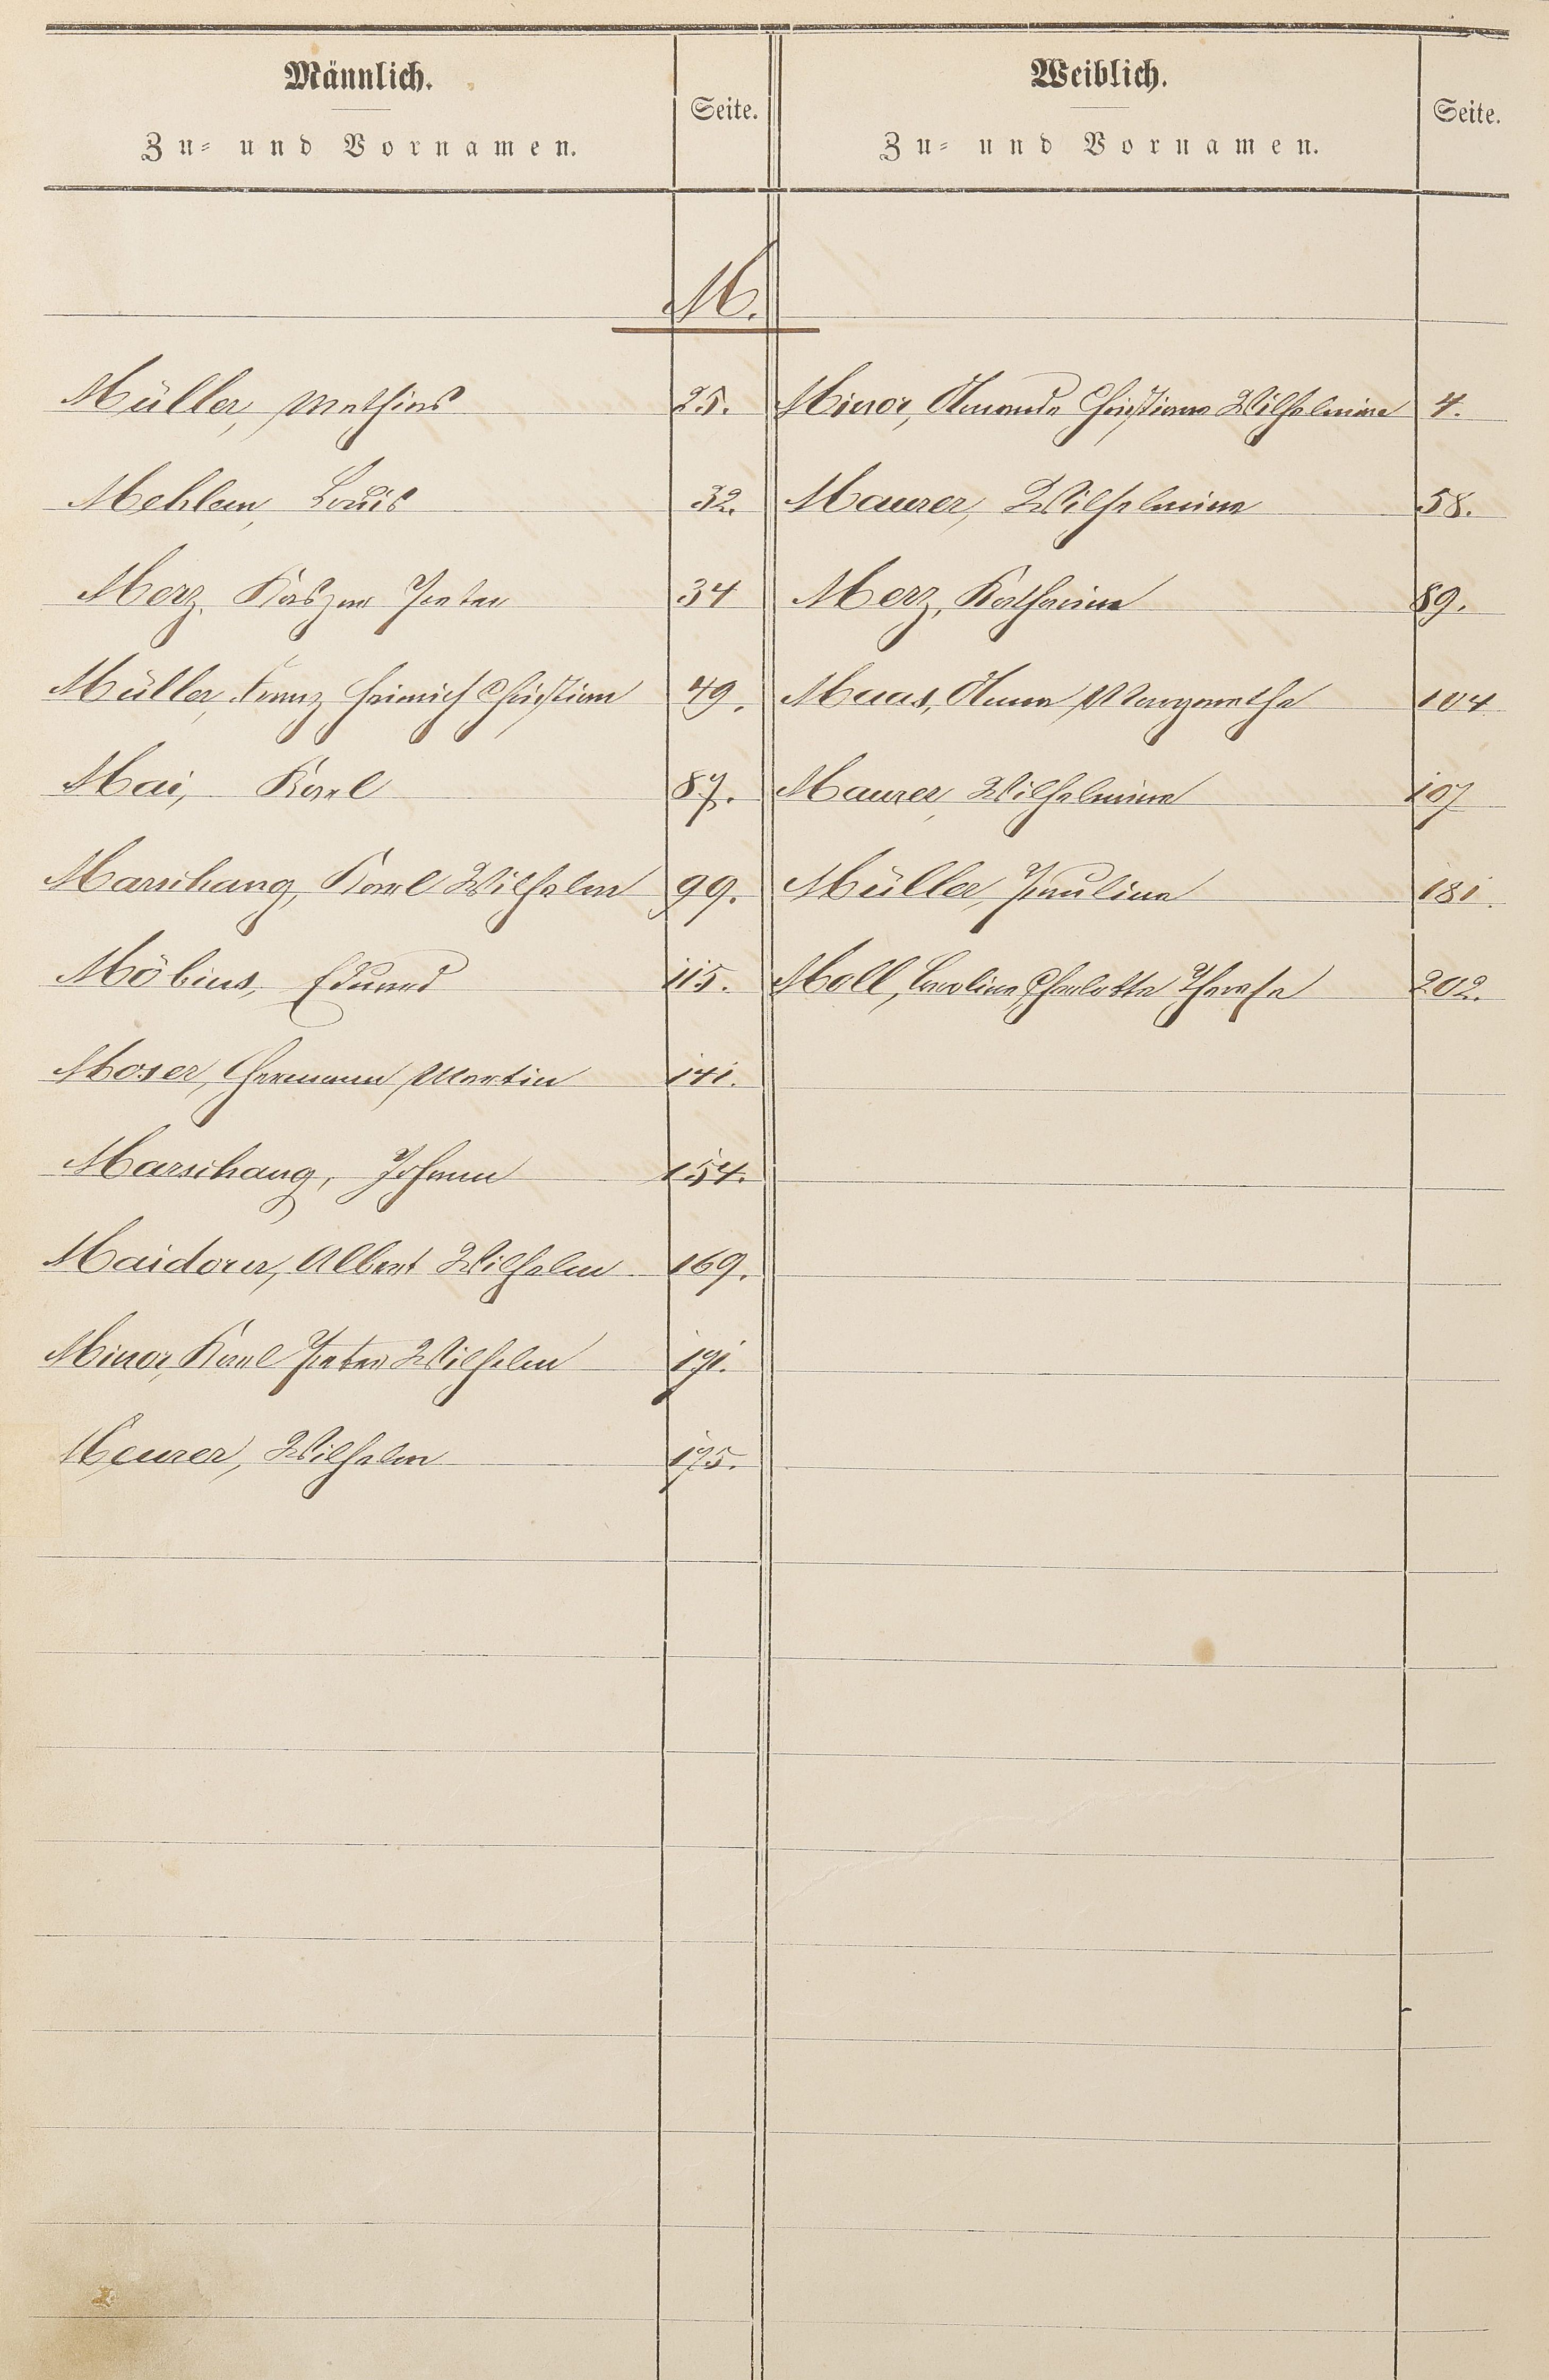 Männlich.
Zu- und Vornamen.
Seite.
Weiblich.
Zu- und Vornamen.
Seite.
M.
Müller, Mathias 25. Minor, Amanda Christiane Wilhelmine 4.
Mehlem, Louis 32. Maurer, Wilhelmine 58.
Merz, Kaspar Peter 34 Merz, Katharina 89.
Müller, Franz Heinrich Christian 49. Maas, Anna Margarethe 104
Mai, Karl 87. Maurer, Wilhelmine 107
Marschang, Karl Wilhelm 99. Müller, Pauline 181.
Möbius, Eduard 115. Moll, Caroline Charlotte Therese 202.
Moser, Hermann Martin 141.
Marschang, Johann 154.
Maidorn, Albert Wilhelm 169.
Minor, Karl Peter Wilhelm 191.
Meurer, Wilhelm 195.